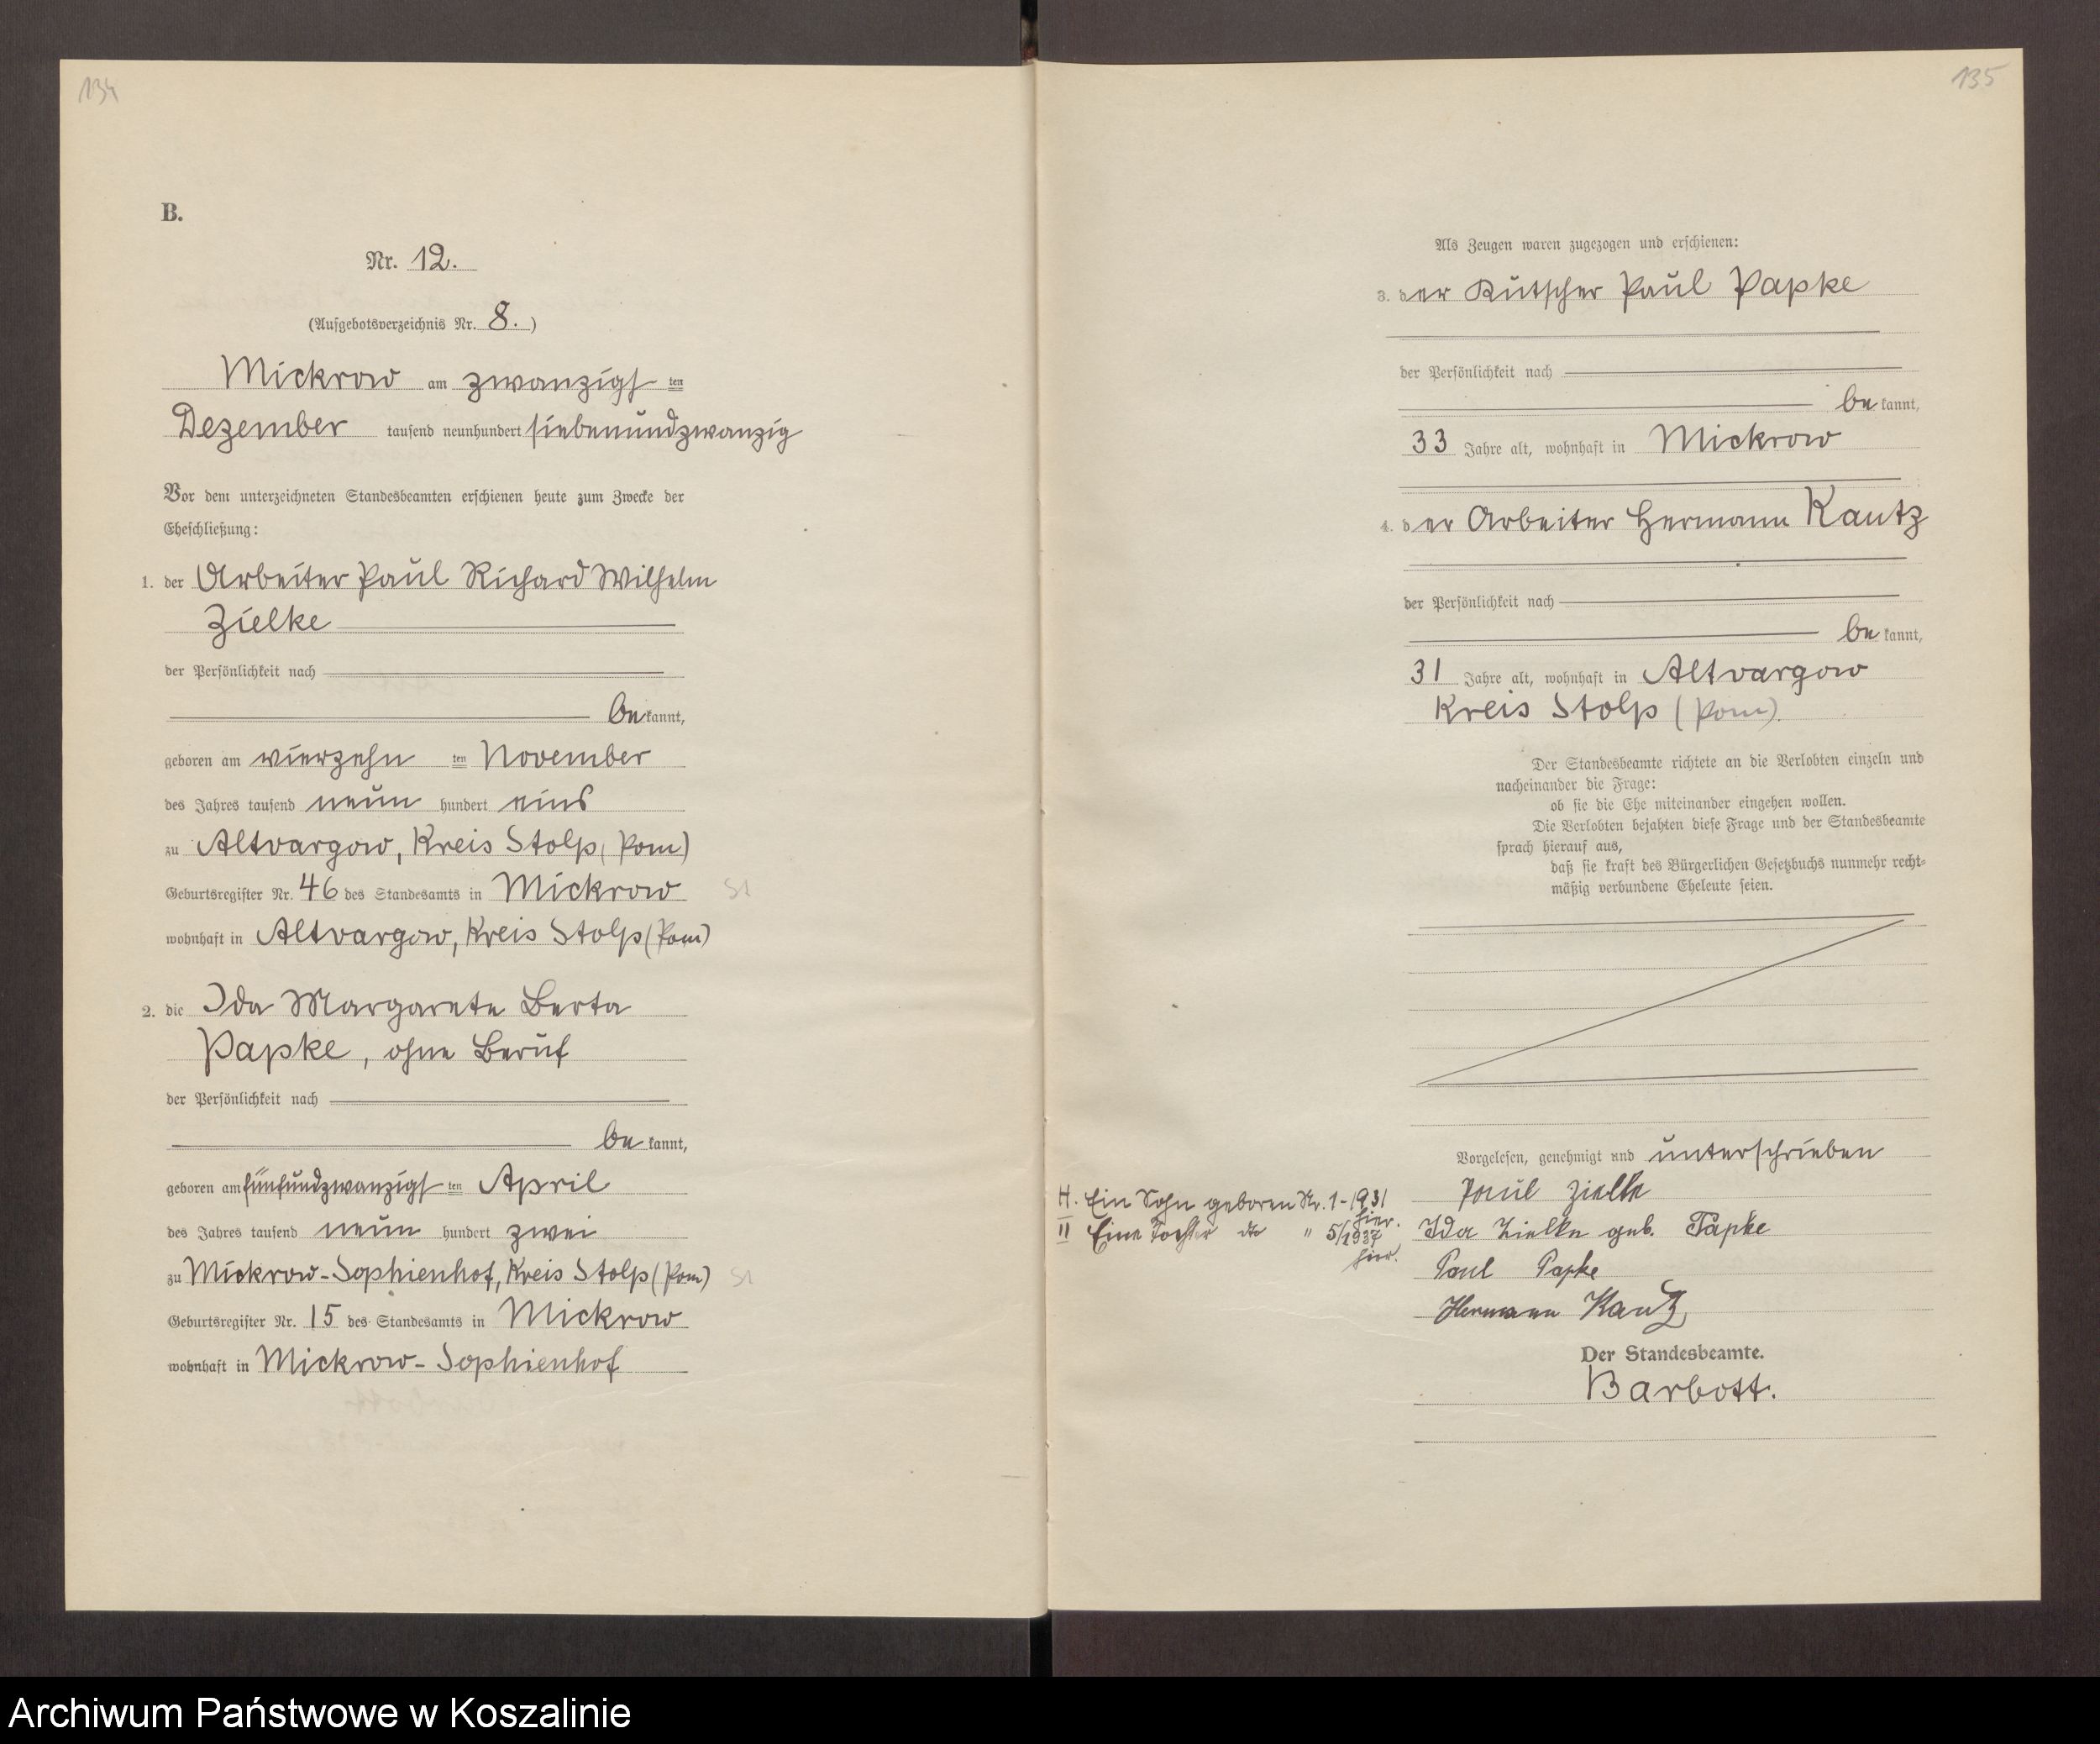 134
B.
Nr. 12.
(Aufgebotsverzeichnis Nr. 8. )
Mickrow am zwanzigsten
Dezember tausend neunhundert siebenundzwanzig
Vor dem unterzeichneten Standesbeamten erschienen heute zum Zwecke der
Eheschließung:
1. der Arbeiter Paul Richard Wilhelm
Zielke
der Persönlichkeit nach
bekannt,
geboren am vierzehnten November
des Jahres tausend neun hundert eins
zu Altvargow, Kreis Stolp (Pom)
Geburtsregister Nr. 46 des Standesamts in Mickrow S1
wohnhaft in Altvargow, Kreis Stolp (Pom)
2. die Ida Margarete Berta
Papke, ohne Beruf
der Persönlichkeit nach
bekannt,
geboren am fünfundzwanzigsten April
des Jahres tausend neun hundert zwei
zu Mickrow-Sophienhof, Kreis Stolp (Pom) S1
Geburtsregister Nr. 15 des Standesamts in Mickrow
wohnhaft in Mickrow-Sophienhof
135
Als Zeugen waren zugezogen und erschienen:
3. der Kutscher Paul Papke
der Persönlichkeit nach
bekannt,
33 Jahre alt, wohnhaft in Mickrow
4. der Arbeiter Hermann Kautz
der Persönlichkeit nach
bekannt,
31 Jahre alt, wohnhaft in Altvargow
Kreis Stolp (Pom).
Der Standesbeamte richtete an die Verlobten einzeln und
nacheinander die Frage:
ob sie die Ehe miteinander eingehen wollen.
Die Verlobten bejahten diese Frage und der Standesbeamte
sprach hierauf aus,
daß sie kraft des Bürgerlichen Gesetzbuchs nunmehr recht-
mäßig verbundene Eheleute seien.
Vorgelesen, genehmigt und unterschrieben
Paul Zielke
Ida Zielke geb. Papke
Paul Papke
Hermann Kautz
Der Standesbeamte.
Barbott.
Ein Sohn geboren Nr. 1-1931
hier.
II Eine Tochter do " 5/1937
hier.
Archiwum Państwowe w Koszalinie